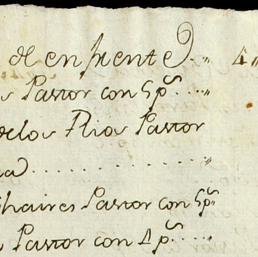 de enfrente .. 4..
s Pastor con 5 p.s ...
de los Rios Pastor
a) .............. "
haires Pastor con 5 p.s
Pastor con 4 p.s .....